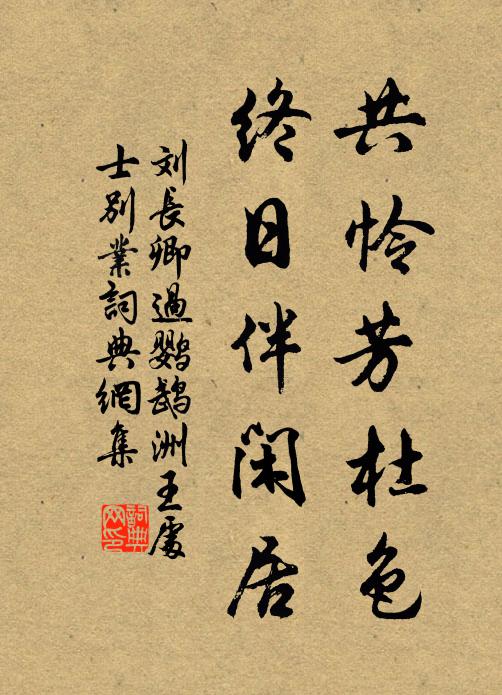 共怜芳杜色
终日伴闲居
刘長卿過鹦鹉洲王處
士别業詞典網集
詞典
网印